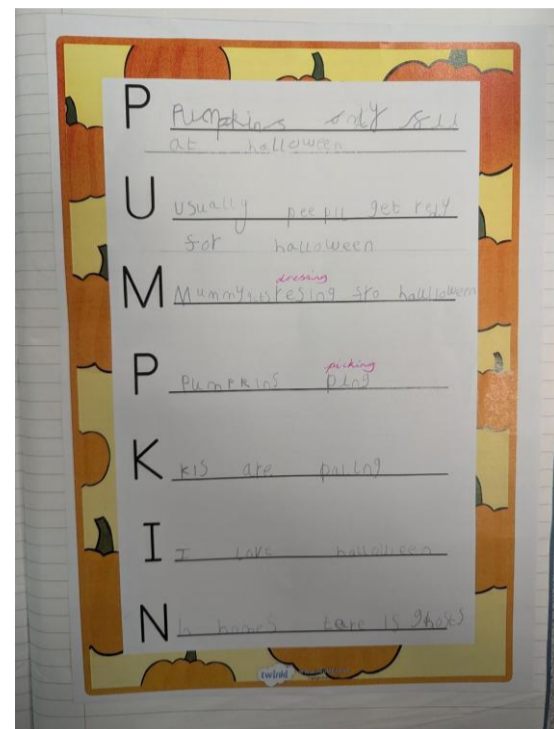 P Pumpkins only sell
at halloween
U usually peepll get redy
for halloween
dressing
M Mummy gets resing fro halloween
picking
P Pumpkins ping
K kis are pailng
I I love halloween
N In homes tare is ghosts
twinkl